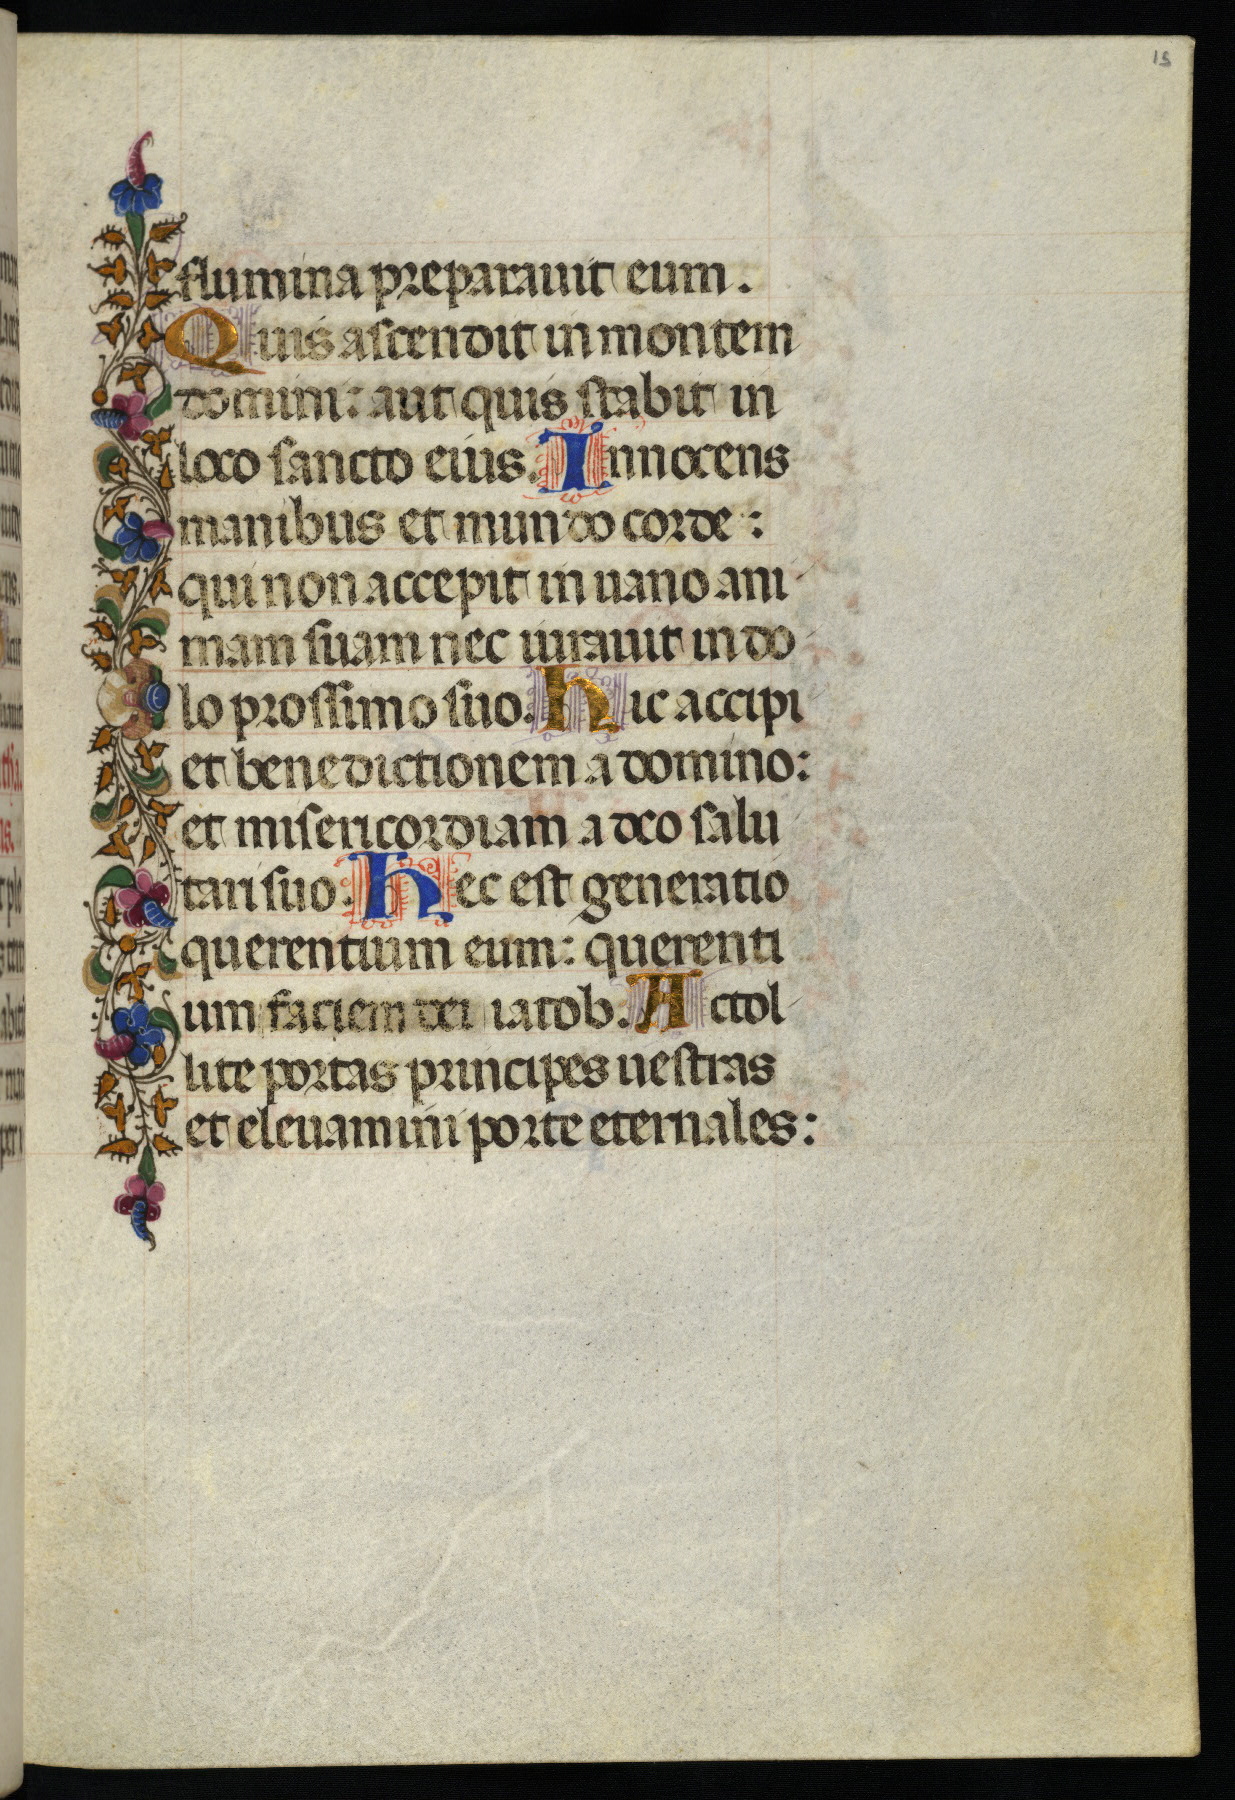 15
flumina preparauit eum.
Quis ascendit in montem
domini: aut quis stabit in
loco sancto eius. Innocens
manibus et mundo corde:
qui non accepit in uano ani
mam suam nec iurauit in do
lo prossimo suo. hic accipi
et benedictionem a domino:
et misericordiam a deo salu
tari suo. hec est generatio
querentium eum: querenti
um faciem dei iacob. Actol
lite portas principes uestras
et eleuamini porte eternales: